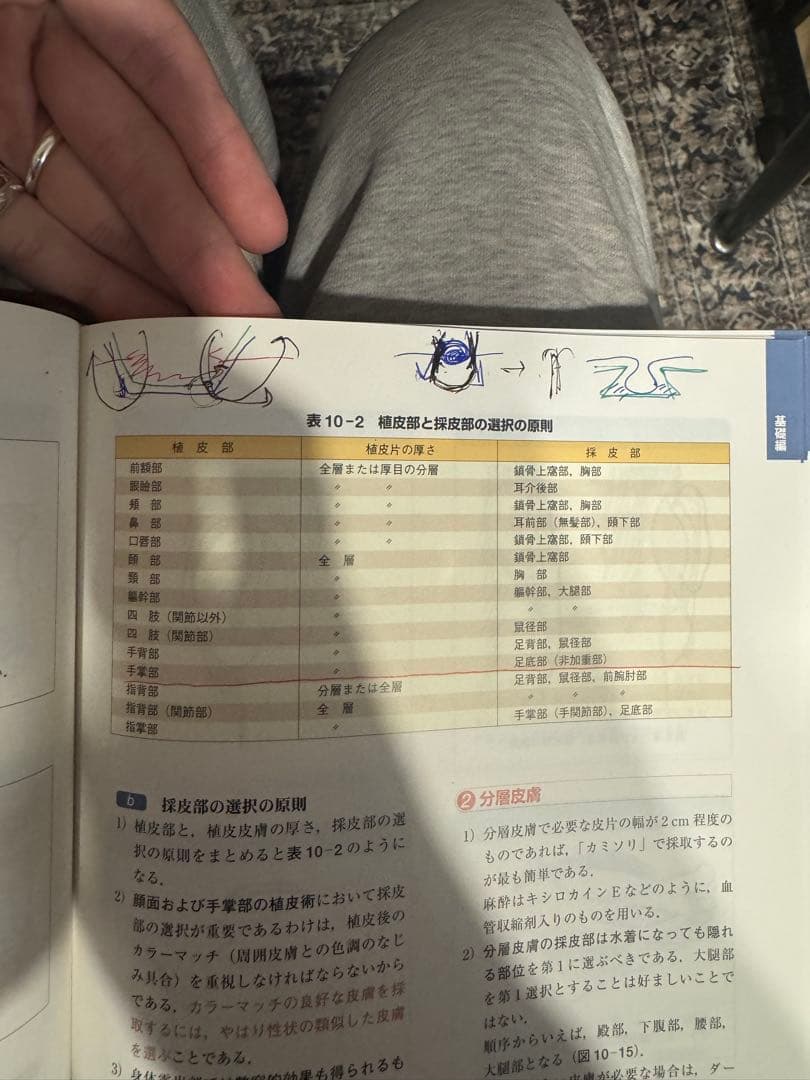 基礎編
表10-2 植皮部と採皮部の選択の原則
植皮部 植皮片の厚さ 採皮部
前額部 全層または厚目の分層 鎖骨上窩部，胸部
眼瞼部 〃 〃 耳介後部
頬 部 〃 〃 鎖骨上窩部，胸部
鼻 部 〃 〃 耳前部（無髪部），頤下部
口唇部 〃 〃 鎖骨上窩部，頤下部
頤 部 全 層 鎖骨上窩部
頸 部 〃 胸 部
軀幹部 〃 軀幹部，大腿部
四 肢（関節以外） 〃 〃 〃
四 肢（関節部） 〃 鼠径部
手背部 〃 足背部，鼠径部
手掌部 〃 足底部（非加重部）
指背部 分層または全層 足背部，鼠径部，前腕肘部
指背部（関節部） 全 層 〃 〃 〃
指掌部 〃 手掌部（手関節部），足底部
b 採皮部の選択の原則
1）植皮部と，植皮皮膚の厚さ，採皮部の選
択の原則をまとめると表10-2のように
なる．
2）顔面および手掌部の植皮術において採皮
部の選択が重要であるわけは，植皮後の
カラーマッチ（周囲皮膚との色調のなじ
み具合）を重視しなければならないから
である．カラーマッチの良好な皮膚を採
取するには，やはり性状の類似した皮膚
を選ぶことである．
3）
2 分層皮膚
1）分層皮膚で必要な皮片の幅が2cm程度の
ものであれば，「カミソリ」で採取するの
が最も簡単である．
麻酔はキシロカインEなどのように，血
管収縮剤入りのものを用いる．
2）分層皮膚の採皮部は水着になっても隠れ
る部位を第1に選ぶべきである．大腿部
を第1選択とすることは好ましいことで
はない．
順序からいえば，殿部，下腹部，腰部，
大腿部となる（図10-15）．
皮膚が必要な場合は，ダー